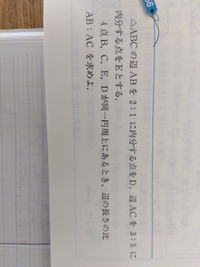 △ABCの辺ABを2:1に内分する点をD、辺ACを3:5に
内分する点をEとする。
4点B、C、E、Dが同一円周上にあるとき、辺の長さの比
AB:ACを求めよ。